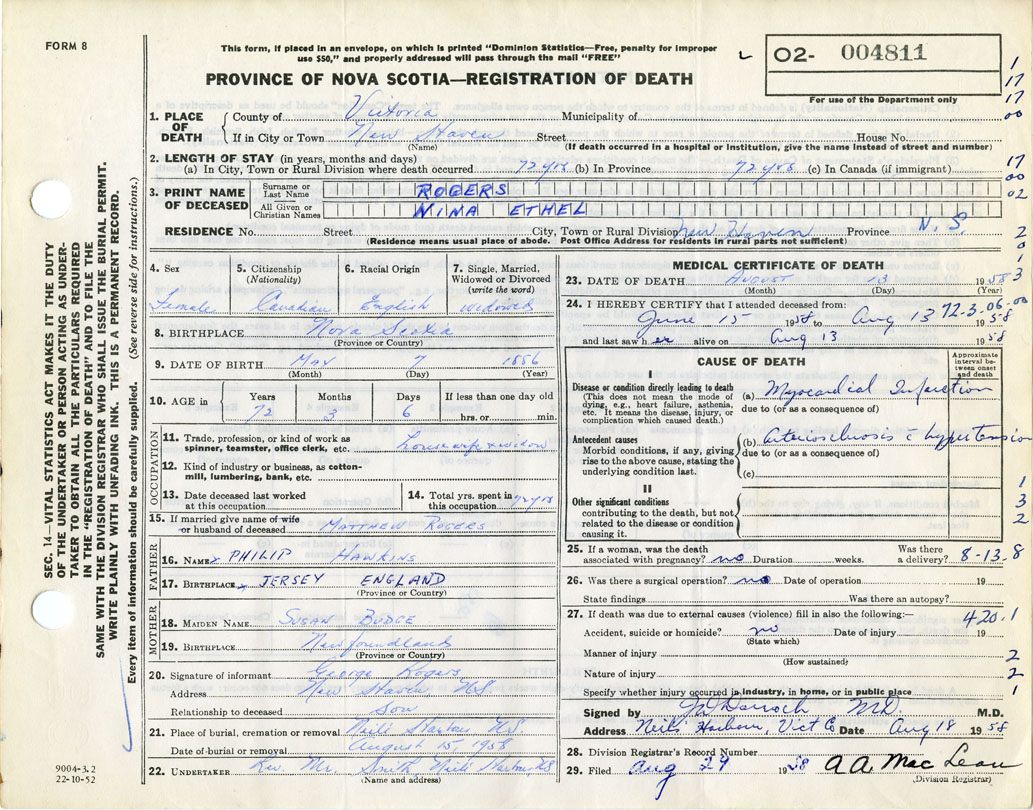 FORM 8
This form, if placed in an envelope, on which is printed "Dominion Statistics—Free, penalty for improper
use $50," and properly addressed will pass through the mail "FREE"
PROVINCE OF NOVA SCOTIA—REGISTRATION OF DEATH
O2- 004811
For use of the Department only
1. PLACE OF DEATH
County of Victoria Municipality of
If in City or Town New Haven Street House No.
(Name) (If death occurred in a hospital or Institution, give the name instead of street and number)
2. LENGTH OF STAY (in years, months and days)
(a) In City, Town or Rural Division where death occurred 72 yrs (b) In Province 72 yrs (c) In Canada (if immigrant)
3. PRINT NAME OF DECEASED
Surname or Last Name ROGERS
All Given or Christian Names NINA ETHEL
RESIDENCE No. Street City, Town or Rural Division New Haven Province N.S.
(Residence means usual place of abode. Post Office Address for residents in rural parts not sufficient)
4. Sex
Female
5. Citizenship
(Nationality)
Canadian
6. Racial Origin
English
7. Single, Married,
Widowed or Divorced
(write the word)
8. BIRTHPLACE Nova Scotia
(Province or Country)
9. DATE OF BIRTH May 7 1886
(Month) (Day) (Year)
10. AGE in
Years Months Days If less than one day old
72 3 6 hrs. or min.
OCCUPATION
11. Trade, profession, or kind of work as
spinner, teamster, office clerk, etc.
12. Kind of industry or business, as cotton-
mill, lumbering, bank, etc.
13. Date deceased last worked
at this occupation
14. Total yrs. spent in
this occupation
15. If married give name of wife
or husband of deceased MATTHEW ROGERS
FATHER
16. NAME PHILIP HAWKINS
17. BIRTHPLACE JERSEY ENGLAND
(Province or Country)
MOTHER
18. MAIDEN NAME SUSAN BUDGE
19. BIRTHPLACE Newfoundland
(Province or Country)
20. Signature of informant George Rogers
Address New Haven NS.
Relationship to deceased Son
21. Place of burial, cremation or removal Neils Harbour NS.
Date of burial or removal August 15, 1958
22. UNDERTAKER Rev. Mr. Smith, Neils Harbour, NS
(Name and address)
MEDICAL CERTIFICATE OF DEATH
23. DATE OF DEATH August 13 1958
(Month) (Day) (Year)
24. I HEREBY CERTIFY that I attended deceased from:
June 15 1958 to Aug 13 1958
72-3-06-00
and last saw her alive on Aug 13 1958
CAUSE OF DEATH
Approximate
interval be-
tween onset
and death
I
Disease or condition directly leading to death
(This does not mean the mode of
dying, e.g., heart failure, asthenia,
etc. It means the disease, injury, or
complication which caused death.)
(a) Myocardial Infarction
due to (or as a consequence of)
Antecedent causes
Morbid conditions, if any, giving
rise to the above cause, stating the
underlying condition last.
(b) arteriosclerosis c hypertension
due to (or as a consequence of)
(c)
II
Other significant conditions
contributing to the death, but not
related to the disease or condition
causing it.
25. If a woman, was the death
associated with pregnancy? no Duration weeks. Was there
a delivery? 8-13-8
26. Was there a surgical operation? no Date of operation 19
State findings Was there an autopsy?
27. If death was due to external causes (violence) fill in also the following:—
420.1
Accident, suicide or homicide? no Date of injury 19
(State which)
Manner of injury
(How sustained)
Nature of injury
Specify whether injury occurred in industry, in home, or in public place
Signed by M.D. M.D.
Address Neils Harbour, Vict Co Date Aug 18 1958
28. Division Registrar's Record Number
29. Filed Aug 29 1958 A A. MacLean
(Division Registrar)
1
17
17
00
17
00
02
2
0
1
3
1
3
2
2
2
1
SEC. 14—VITAL STATISTICS ACT MAKES IT THE DUTY
OF THE UNDERTAKER OR PERSON ACTING AS UNDER-
TAKER TO OBTAIN ALL THE PARTICULARS REQUIRED
IN THE "REGISTRATION OF DEATH" AND TO FILE THE
SAME WITH THE DIVISION REGISTRAR WHO SHALL ISSUE THE BURIAL PERMIT.
WRITE PLAINLY WITH UNFADING INK. THIS IS A PERMANENT RECORD.
Every item of information should be carefully supplied. (See reverse side for instructions.)
9004-3.2
22-10-52